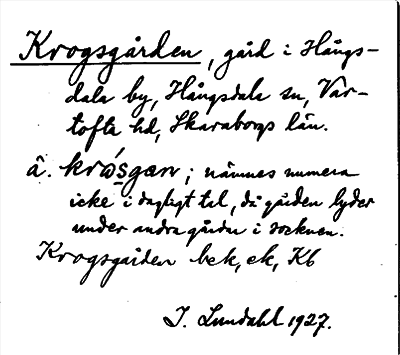 Krogsgården, gård i Hångs-
dala by, Hångsdala sn, Var-
tofta hd, Skaraborgs län.
â. krɷ́sgan; nämnes numera
icke i dagligt tal, då gården lyder
under andra gårdar i socknen.
Krogsgården bek, ek, Kb
I. Lundahl 1927.